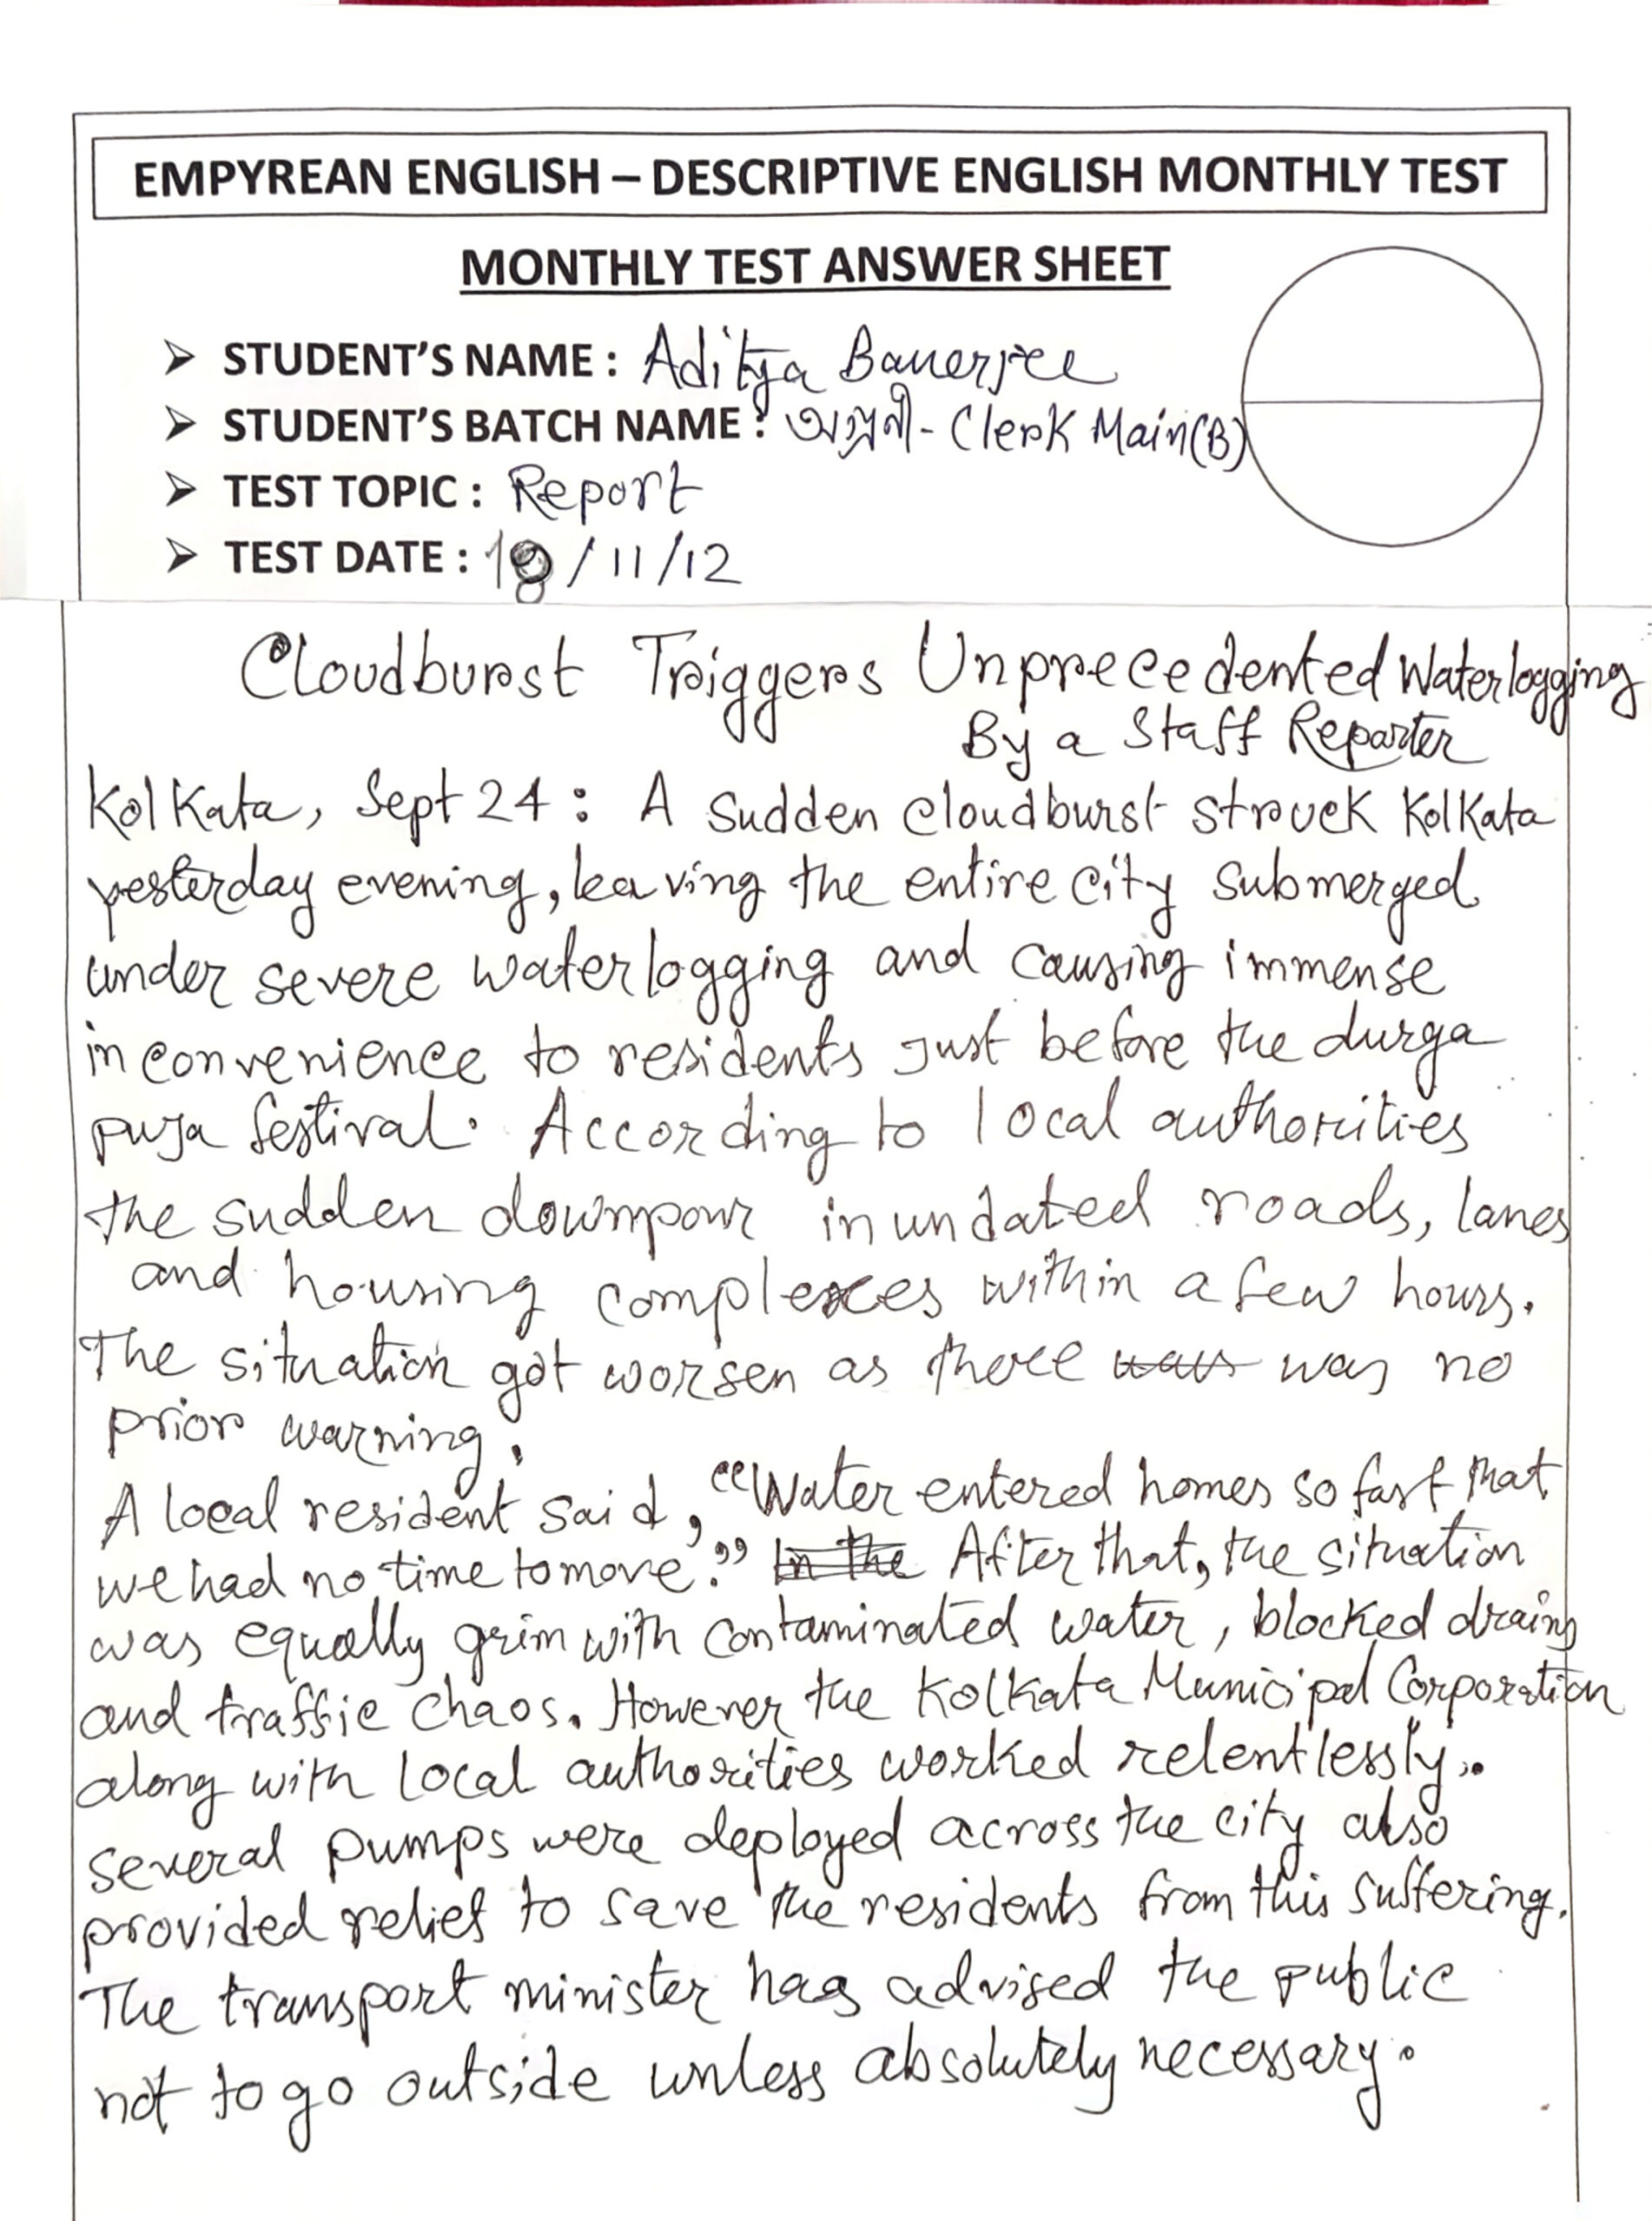 EMPYREAN ENGLISH – DESCRIPTIVE ENGLISH MONTHLY TEST
MONTHLY TEST ANSWER SHEET
➤ STUDENT'S NAME : Aditya Banerjee
➤ STUDENT'S BATCH NAME : অগ্রণী - Clerk Main(B)
➤ TEST TOPIC : Report
➤ TEST DATE : 18/11/12
Cloudburst Triggers Unprecedented Waterlogging
By a Staff Reporter
Kolkata, Sept 24 : A sudden cloudburst struck Kolkata
yesterday evening, leaving the entire city submerged
under severe waterlogging and causing immense
inconvenience to residents just before the durga
puja festival. According to local authorities
the sudden downpour inundated roads, lanes
and housing complexes within a few hours.
The situation got worsen as there was no
prior warning.
A local resident said, "Water entered homes so fast that
we had no time to move." In the After that, the situation
was equally grim with contaminated water, blocked drains
and traffic chaos. However the Kolkata Municipal Corporation
along with local authorities worked relentlessly.
several pumps were deployed across the city also
provided relief to save the residents from this suffering.
The transport minister has advised the public
not to go outside unless absolutely necessary.